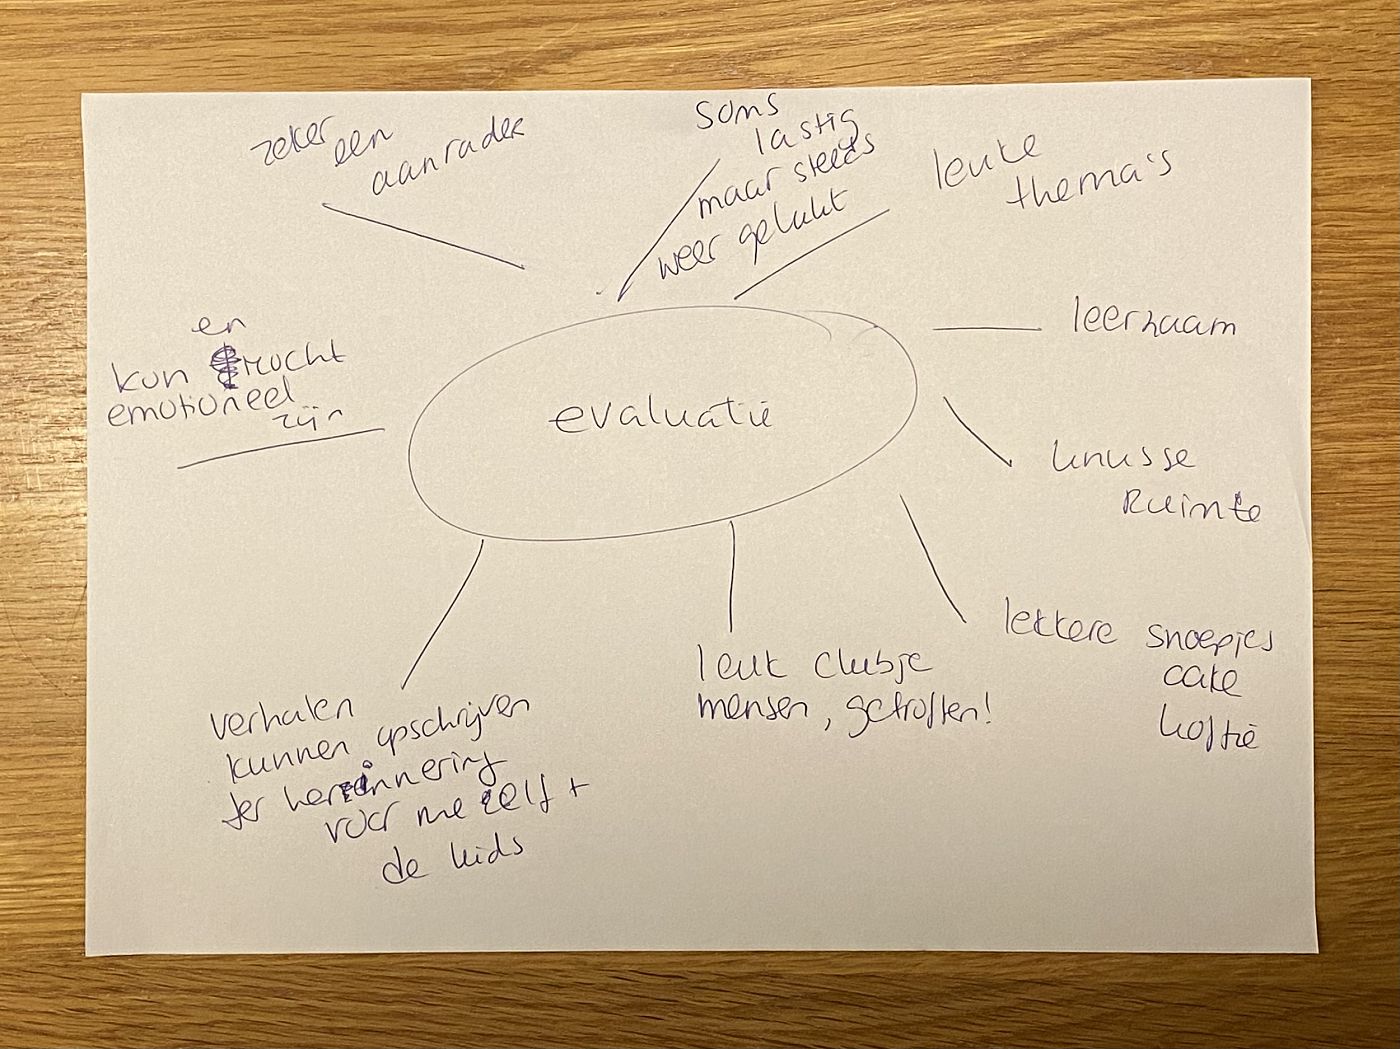 zeker een
aanrader
soms
lastig
maar steeds
weer gelukt
leuke
thema's
leerzaam
knusse
Ruimte
lekkere snoepjes
cake
koffie
leuk clubje
mensen, getroffen!
verhalen
kunnen opschrijven
ter herinnering
voor mezelf +
de kids
en
kan mocht
emotioneel
zijn
evaluatie